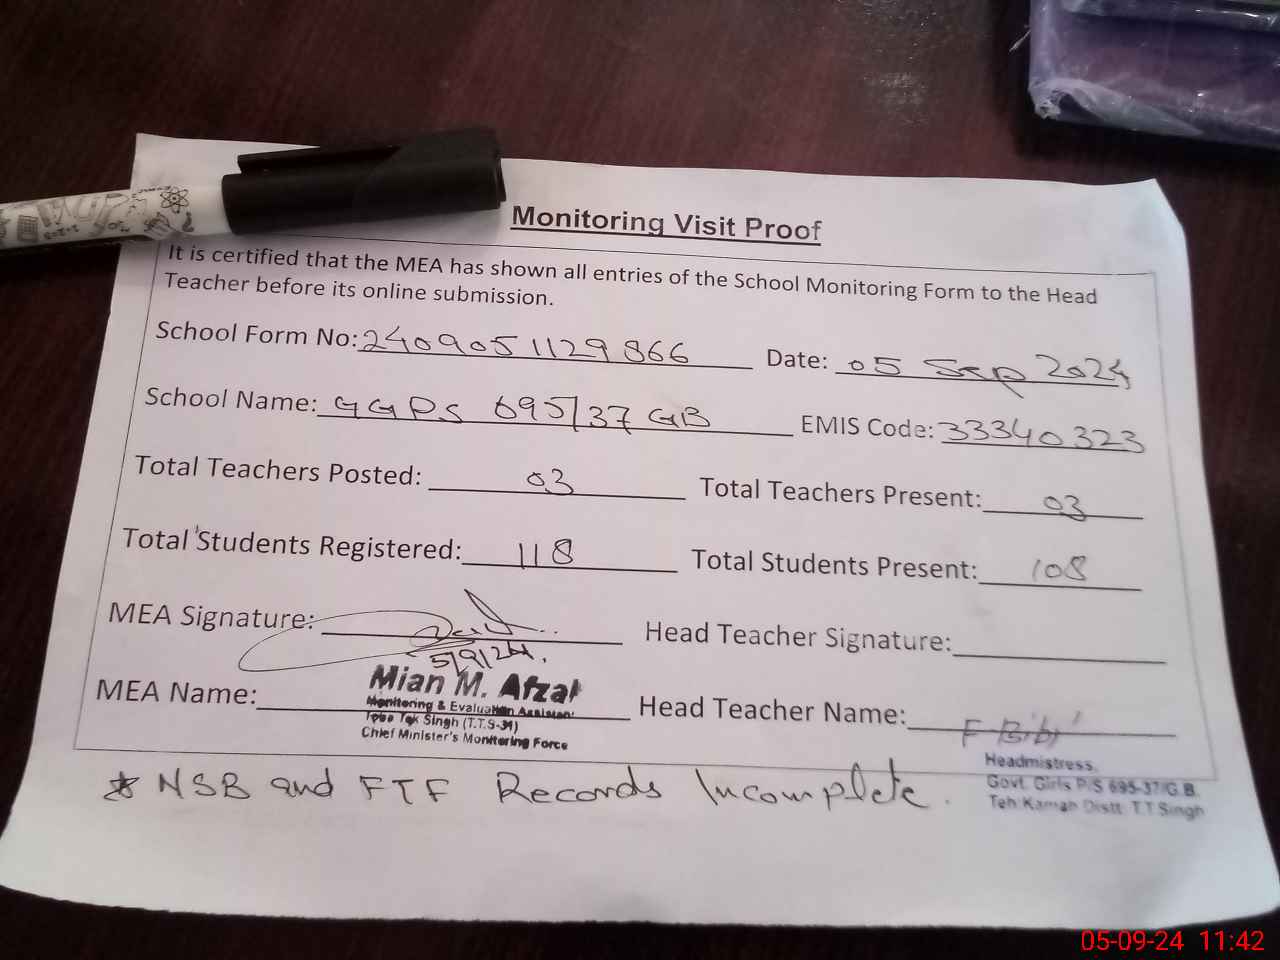 Monitoring Visit Proof
It is certified that the MEA has shown all entries of the School Monitoring Form to the Head
Teacher before its online submission.
School Form No: 2409051129866 Date: 05 Sep 2024
School Name: GGPS 695/37 GB EMIS Code: 33340323
Total Teachers Posted: 03 Total Teachers Present: 03
Total Students Registered: 118 Total Students Present: 108
MEA Signature: Head Teacher Signature:
5/9/24.
MEA Name: Mian M. Afzal Head Teacher Name: F Bibi
Monitoring & Evaluation Assistant
Toba Tek Singh (T.T.S-31)
Chief Minister's Monitoring Force
Headmistress,
Govt. Girls P/S 695-37/G.B.
Teh: Kamah Distt: T.T.Singh
* NSB and FTF Records Incomplete.
05-09-24 11:42